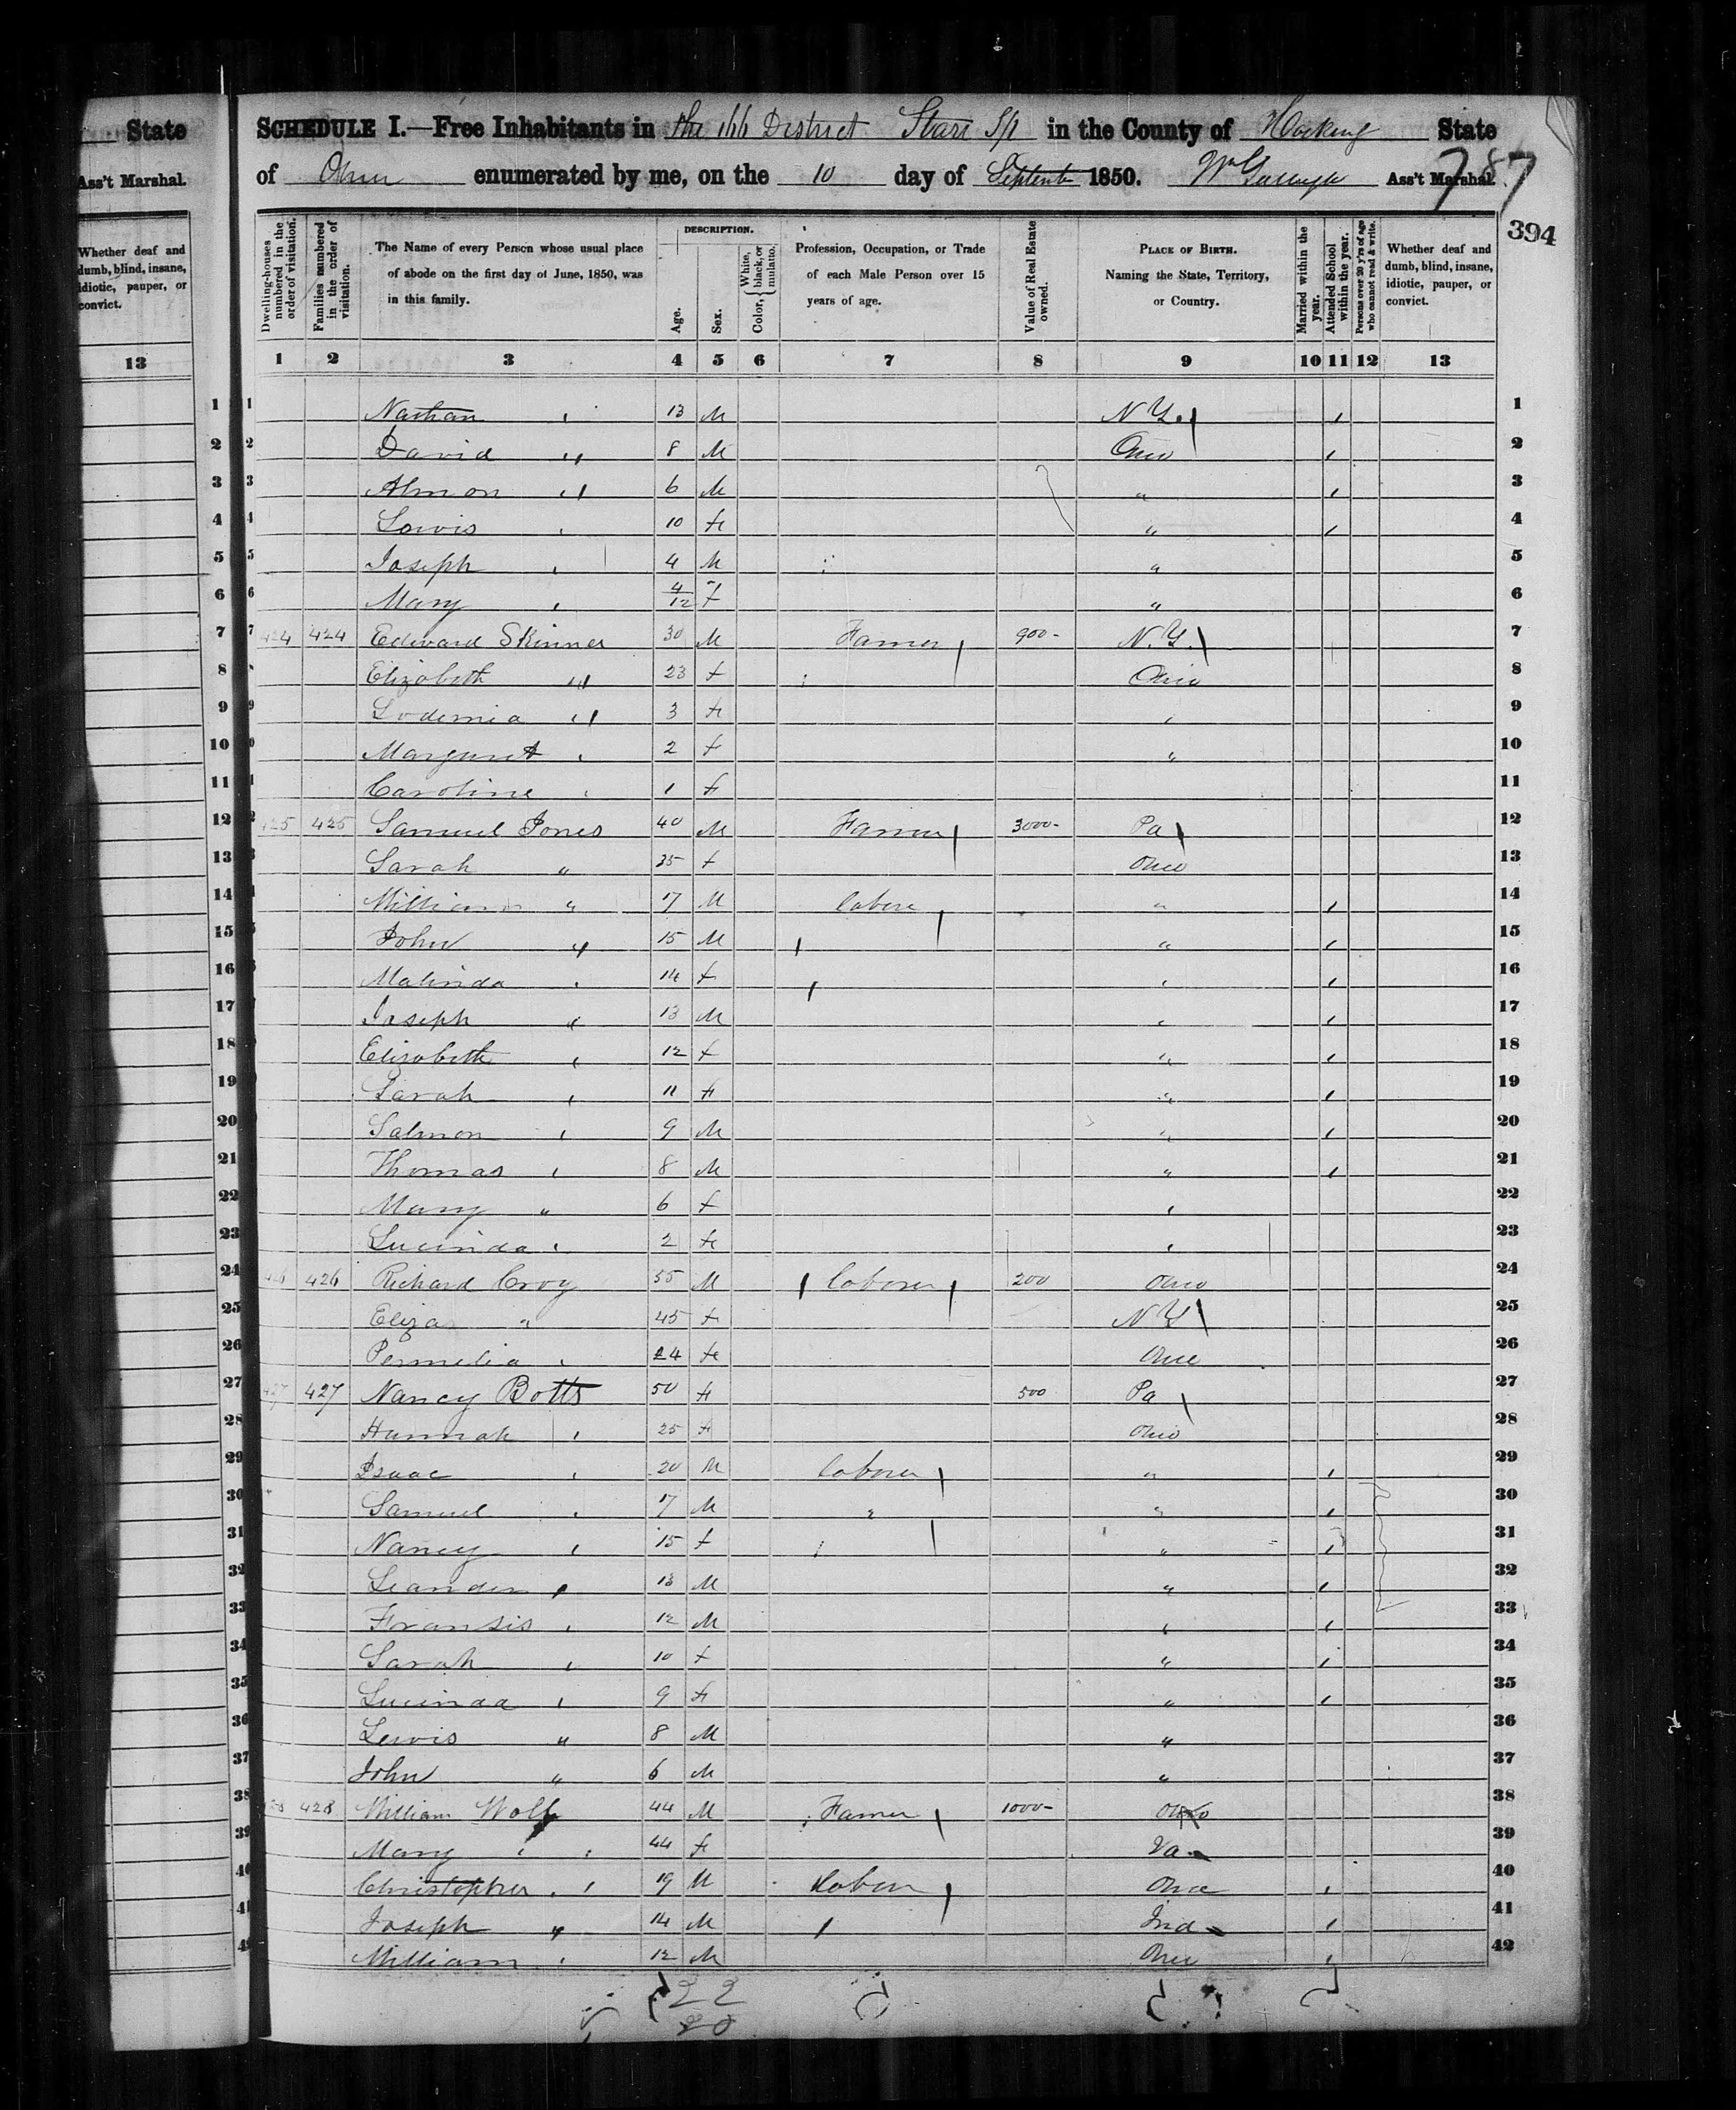 State
Ass't Marshal.
Whether deaf and dumb, blind, insane, idiotic, pauper, or convict.
13
SCHEDULE I.—Free Inhabitants in the 66 District Starr T/p in the County of Hocking State
of Ohio enumerated by me, on the 10 day of September 1850. Wm Ass't Marshal.
787
394
Dwelling-houses numbered in the order of visitation.
Families numbered in the order of visitation.
The Name of every Person whose usual place of abode on the first day of June, 1850, was in this family.
DESCRIPTION.
Age.
Sex.
Color, { White, black, or mulatto.
Profession, Occupation, or Trade of each Male Person over 15 years of age.
Value of Real Estate owned.
PLACE OF BIRTH. Naming the State, Territory, or Country.
Married within the year.
Attended School within the year.
Persons over 20 y'rs of age who cannot read & write.
Whether deaf and dumb, blind, insane, idiotic, pauper, or convict.
1 2 3 4 5 6 7 8 9 10 11 12 13
1 Nathan " 13 M N Y. / 1
2 David " 8 M Ohio / 2
3 Almon " 6 M " / 3
4 Lovis " 10 F " / 4
5 Joseph " 4 M " 5
6 Mary " 4/12 F " 6
7 424 424 Edward Skinner 30 M Farmer 900- N. Y. 7
8 Elizabeth " 23 F Ohio 8
9 Lodemia " 3 F " 9
10 Margaret " 2 F " 10
11 Caroline " 1 F 11
12 425 425 Samuel Jones 40 M Farmer 3000- Pa 12
13 Sarah " 35 F Ohio 13
14 William " 17 M labore " / 14
15 John " 15 M " / 15
16 Malinda " 14 F " / 16
17 Joseph " 13 M " / 17
18 Elizabeth " 12 F " / 18
19 Sarah " 11 F " / 19
20 Salmon " 9 M " / 20
21 Thomas " 8 M " / 21
22 Mary " 6 F " 22
23 Lucinda " 2 F " 23
24 426 426 Richard Croy 55 M laborer 200 Ohio 24
25 Eliza " 45 F N Y 25
26 Permelia " 24 F Ohio 26
27 427 427 Nancy Botts 50 F 500 Pa 27
28 Hannah " 25 F Ohio 28
29 Isaac " 20 M laborer " / 29
30 Samuel " 17 M " " / 30
31 Nancy " 15 F " / 31
32 Leander " 13 M " / 32
33 Fransis " 12 M " / 33
34 Sarah " 10 F " / 34
35 Lucinda " 9 F " / 35
36 Lewis " 8 M " 36
37 John " 6 M " 37
38 428 428 William Wolf 44 M Farmer 1000- Ohio 38
39 Mary " 44 F Va 39
40 Christopher " 19 M Labor Ohio / 40
41 Joseph " 14 M Ind / 41
42 William " 12 M Ohio / 42
22
20